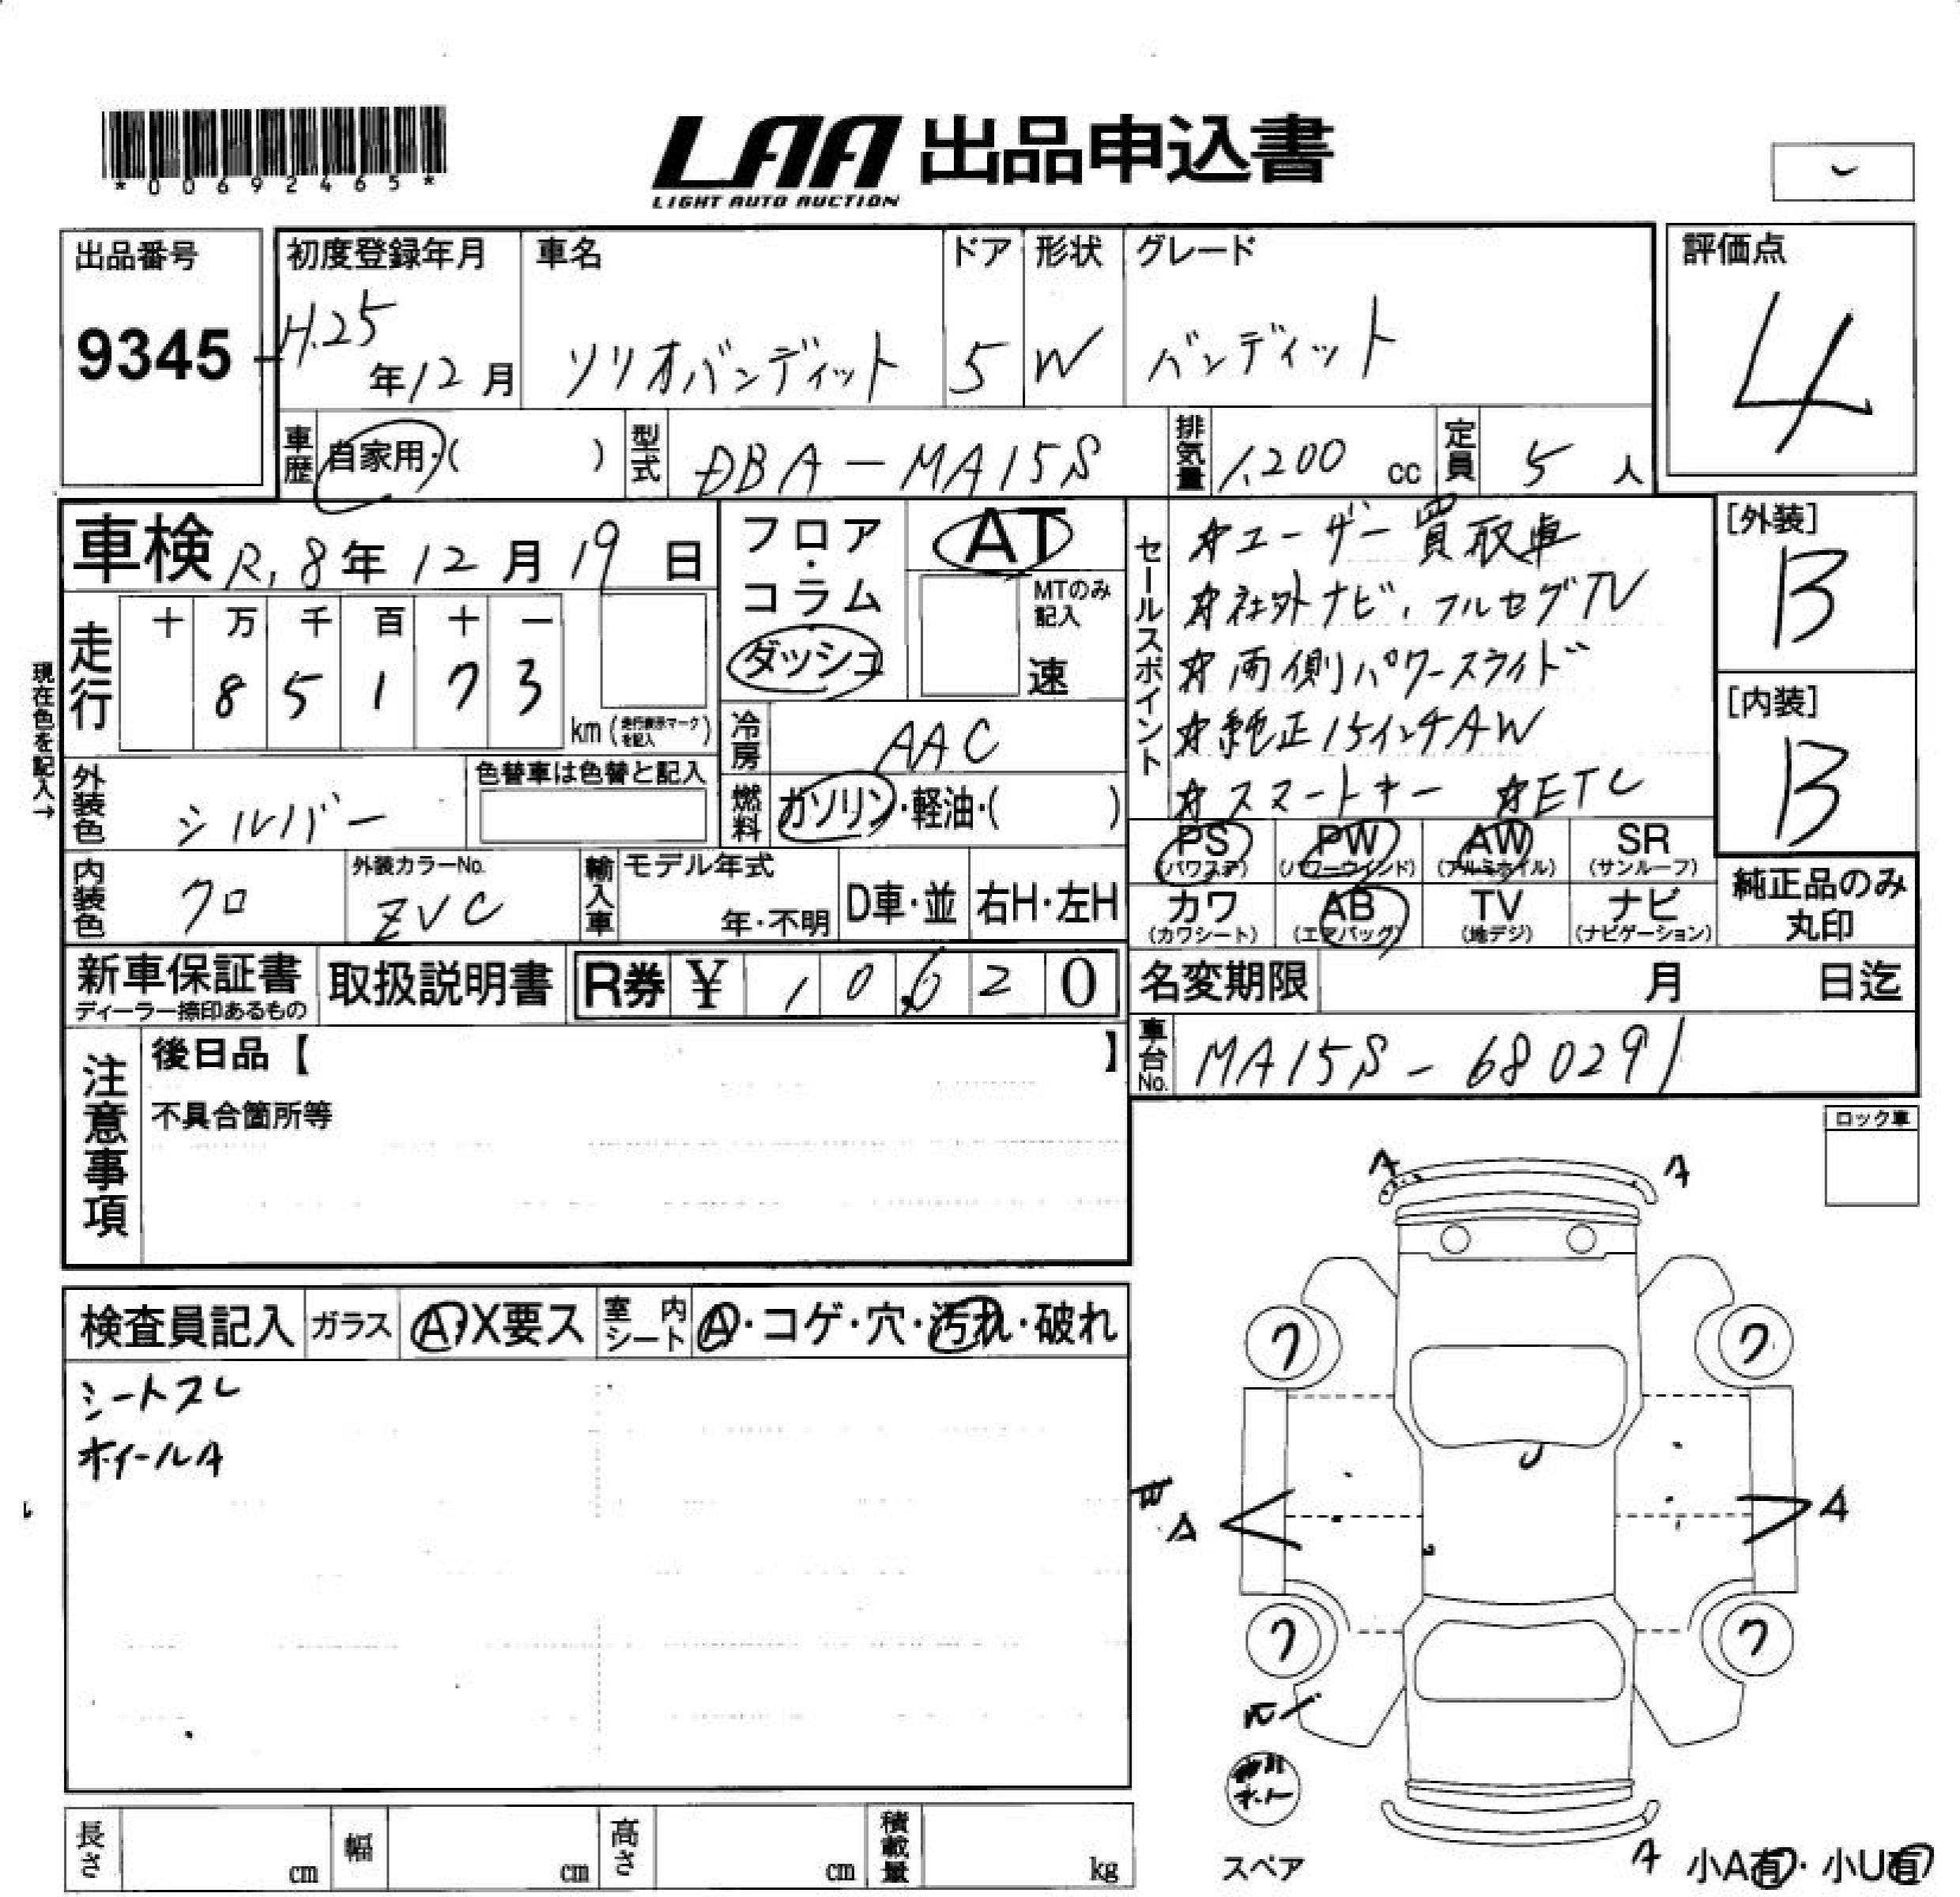 *00692465*
LAA 出品申込書
LIGHT AUTO AUCTION
出品番号
9345
初度登録年月
H.25年12月
車名
ソリオバンディット
ドア
5
形状
W
グレード
バンディット
評価点
4
車歴
自家用・( )
型式
DBA-MA15S
排気量
1,200 cc
定員
5 人
車検 R.8年12月19日
フロア・コラム
ダッシュ
AT
MTのみ記入
速
セールスポイント
☆ユーザー買取車
☆社外ナビ、フルセグTV
☆両側パワースライド
☆純正15インチAW
☆スマートキー ☆ETC
[外装]
B
[内装]
B
現在色を記入→
走行
十 万 千 百 十 一
8 5 1 7 3
km (走行表示マークを記入)
冷房
AAC
外装色
シルバー
色替車は色替と記入
燃料
ガソリン・軽油・( )
PS (パワステ)
PW (パワーウインド)
AW (アルミホイル)
SR (サンルーフ)
カワ (カワシート)
AB (エアバッグ)
TV (地デジ)
ナビ (ナビゲーション)
純正品のみ丸印
内装色
クロ
外装カラーNo.
ZVC
輸入車
モデル年式
年・不明
D車・並
右H・左H
新車保証書
ディーラー捺印あるもの
取扱説明書
R券 ¥ 10,620
名変期限 月 日迄
車台No.
MA15S-680291
注意事項
後日品【 】
不具合箇所等
ロック車
検査員記入
ガラス
A・X要ス
室内シート
A・コゲ・穴・汚れ・破れ
シートスレ
ホイールA
A
A
7
7
A
A
7
7
スペア
A
小A有・小U有
長さ cm
幅 cm
高さ cm
積載量 kg